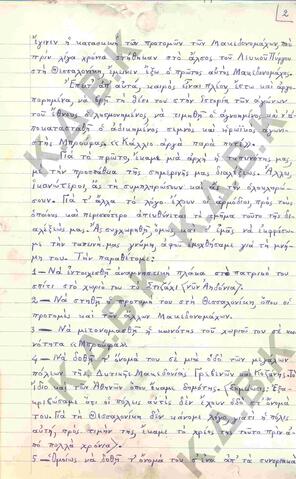 2
ἔγινεν ἡ κατασκευὴ τῶν προτομῶν τῶν Μακεδονομάχων, ποὺ
πρὶν λίγα χρόνια στήθηκαν στὸ ἄλσος τοῦ Λευκοῦ Πύργου
στὴ Θεσσαλονίκη, ἔμεινεν ἔξω ὁ πρῶτος αὐτὸς Μακεδονομάχος.
Ἔπειτα ἀπ' αὐτά, καιρὸς εἶναι πλέον, ἔστω καὶ ἀργο-
πορημένα, νὰ βρῇ τὴ θέση του στὴν ἱστορία τῶν ἀγώνων
τοῦ ἔθνους ὁ λησμονημένος, νὰ τιμηθῇ ὁ ἀγνοημένος καὶ ν'
ἀποκατασταθῇ ὁ ἀδικημένος, τίμιος καὶ ἡρωϊκὸς ἀγωνι-
στὴς Μπρούφας. «Κάλλιο ἀργὰ παρὰ ποτέ».
Γιὰ τὸ πρῶτο, ἔκαμε μιὰ ἀρχὴ ἡ ταπεινότης μας,
μὲ τὴν προσπάθεια τῆς σημερινῆς μας διαλέξεως. Ἄλλοι,
ἱκανώτεροι, ἂς τὴ συμπληρώσουν καὶ ἂς τὴν ὁλοκληρώ-
σουν. Γιὰ τ' ἄλλα τὸ λόγο ἔχουν οἱ ἁρμόδιοι, πρὸς τοὺς
ὁποίους καὶ περισσότερο ἀπευθύνεται τὸ μέρος τοῦτο τῆς δια-
λέξεώς μας. Ἂς συγχωρηθῇ, ὅμως, καὶ σ' ἐμᾶς νὰ ἐκφράσω-
με τὴν ταπεινή μας γνώμη, ἀφοῦ ἐμοχθήσαμε γιὰ τὴ μνή-
μη του. Τὴν παραθέτομε:
1 — Νὰ ἐντοιχισθῇ ἀναμνηστικὴ πλάκα στὸ πατρικό του
σπίτι στὸ χωριό του
2 — Νὰ στηθῇ ἡ προτομή του στὴ Θεσσαλονίκη, ὅπου οἱ
προτομὲς καὶ τῶν ἄλλων Μακεδονομάχων.
3 — Νὰ μετονομασθῇ ἡ κοινότης τοῦ χωριοῦ του σὲ κοι-
νότητα «Μπρούφα».
4 — Νὰ δοθῇ τ' ὄνομά του σὲ μιὰ ὁδὸ τῶν μεγάλων
πόλεων τῆς Δυτικῆς Μακεδονίας Γρεβενῶν - Κοζάνης. Τὸ
ἴδιο καὶ τῶν Ἀθηνῶν ὅπου ἔκαμε δημότης. Ἐξα-
κριβώσαμε ὅτι οἱ πόλεις αὐτὲς δὲν ἔχουν ὁδὸ μὲ τ' ὄνομά
του. Γιὰ τὴ Θεσσαλονίκη δὲν κάνομε λόγο, γιατὶ ἡ πόλις
αὐτή, πρὸς τιμήν της, ἔκαμε τὸ χρέος της τοῦτο πρὶν ἀ-
πὸ πολλὰ χρόνια.
5 — Ὁμοίως νὰ δοθῇ τ' ὄνομά του σ' ἕνα ἀπ' τὰ συνοριακὰ
Κ.Α.Β.Κ
Κ.Α.Β.Κ
Κ.Α.Β.Κ